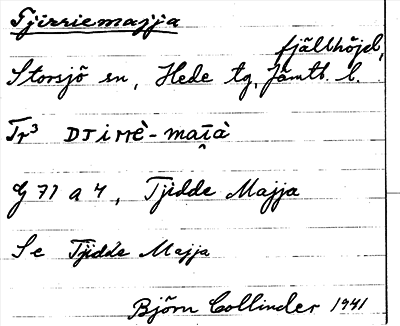 Tjirriemajja
fjällhöjd,
Storsjö sn, Hede tg, Jämtl. l.
Tr³ DJirrè-maià
G 71 a 4, Tjidde Majja
Se Tjidde Majja
Björn Collinder 1941